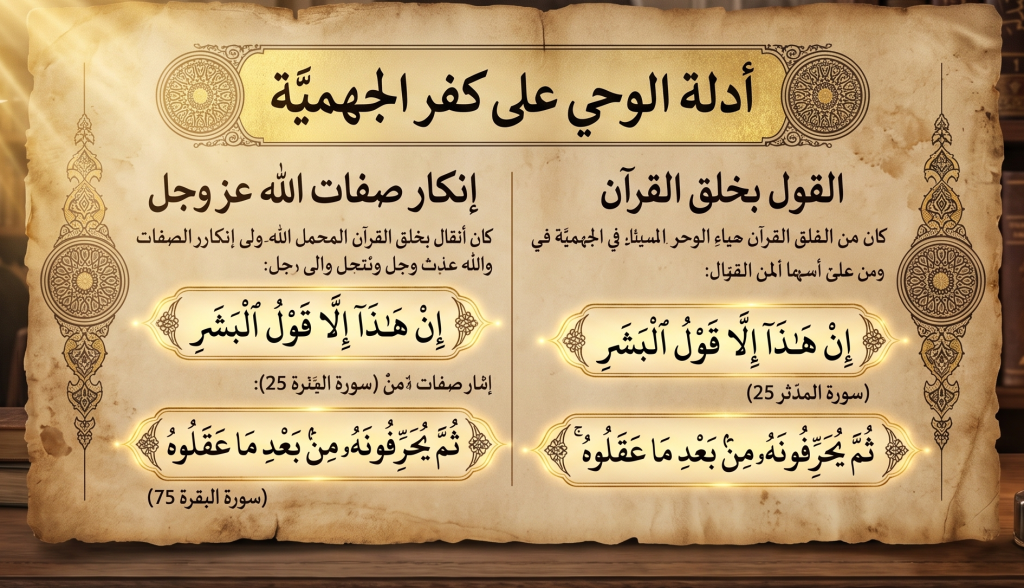 أدلة الوحي على كفر الجهميَّة
القول بخلق القرآن
كان من الفلق القرآن هياءِ الوحر المسيئاءِ في الجهميَّة في
ومن علىّ أسها ألمن القوّال:
إِنْ هَـٰذَآ إِلَّا قَوْلُ ٱلْبَشَرِ
(سورة المدّثر 25)
ثُمَّ يُحَرِّفُونَهُۥ مِنۢ بَعْدِ مَا عَقَلُوهُ ۚ
إنكار صفات الله عز وجل
كان أنقال بخلق القرآن المحمل الله ولى إنكارر الصفات
والله عذِث وجل وئتجل والى رجل:
إِنْ هَـٰذَآ إِلَّا قَوْلُ ٱلْبَشَرِ
صفات (سورة 25):
ثُمَّ يُحَرِّفُونَهُۥ مِنۢ بَعْدِ مَا عَقَلُوهُ
(سورة البقرة 75)